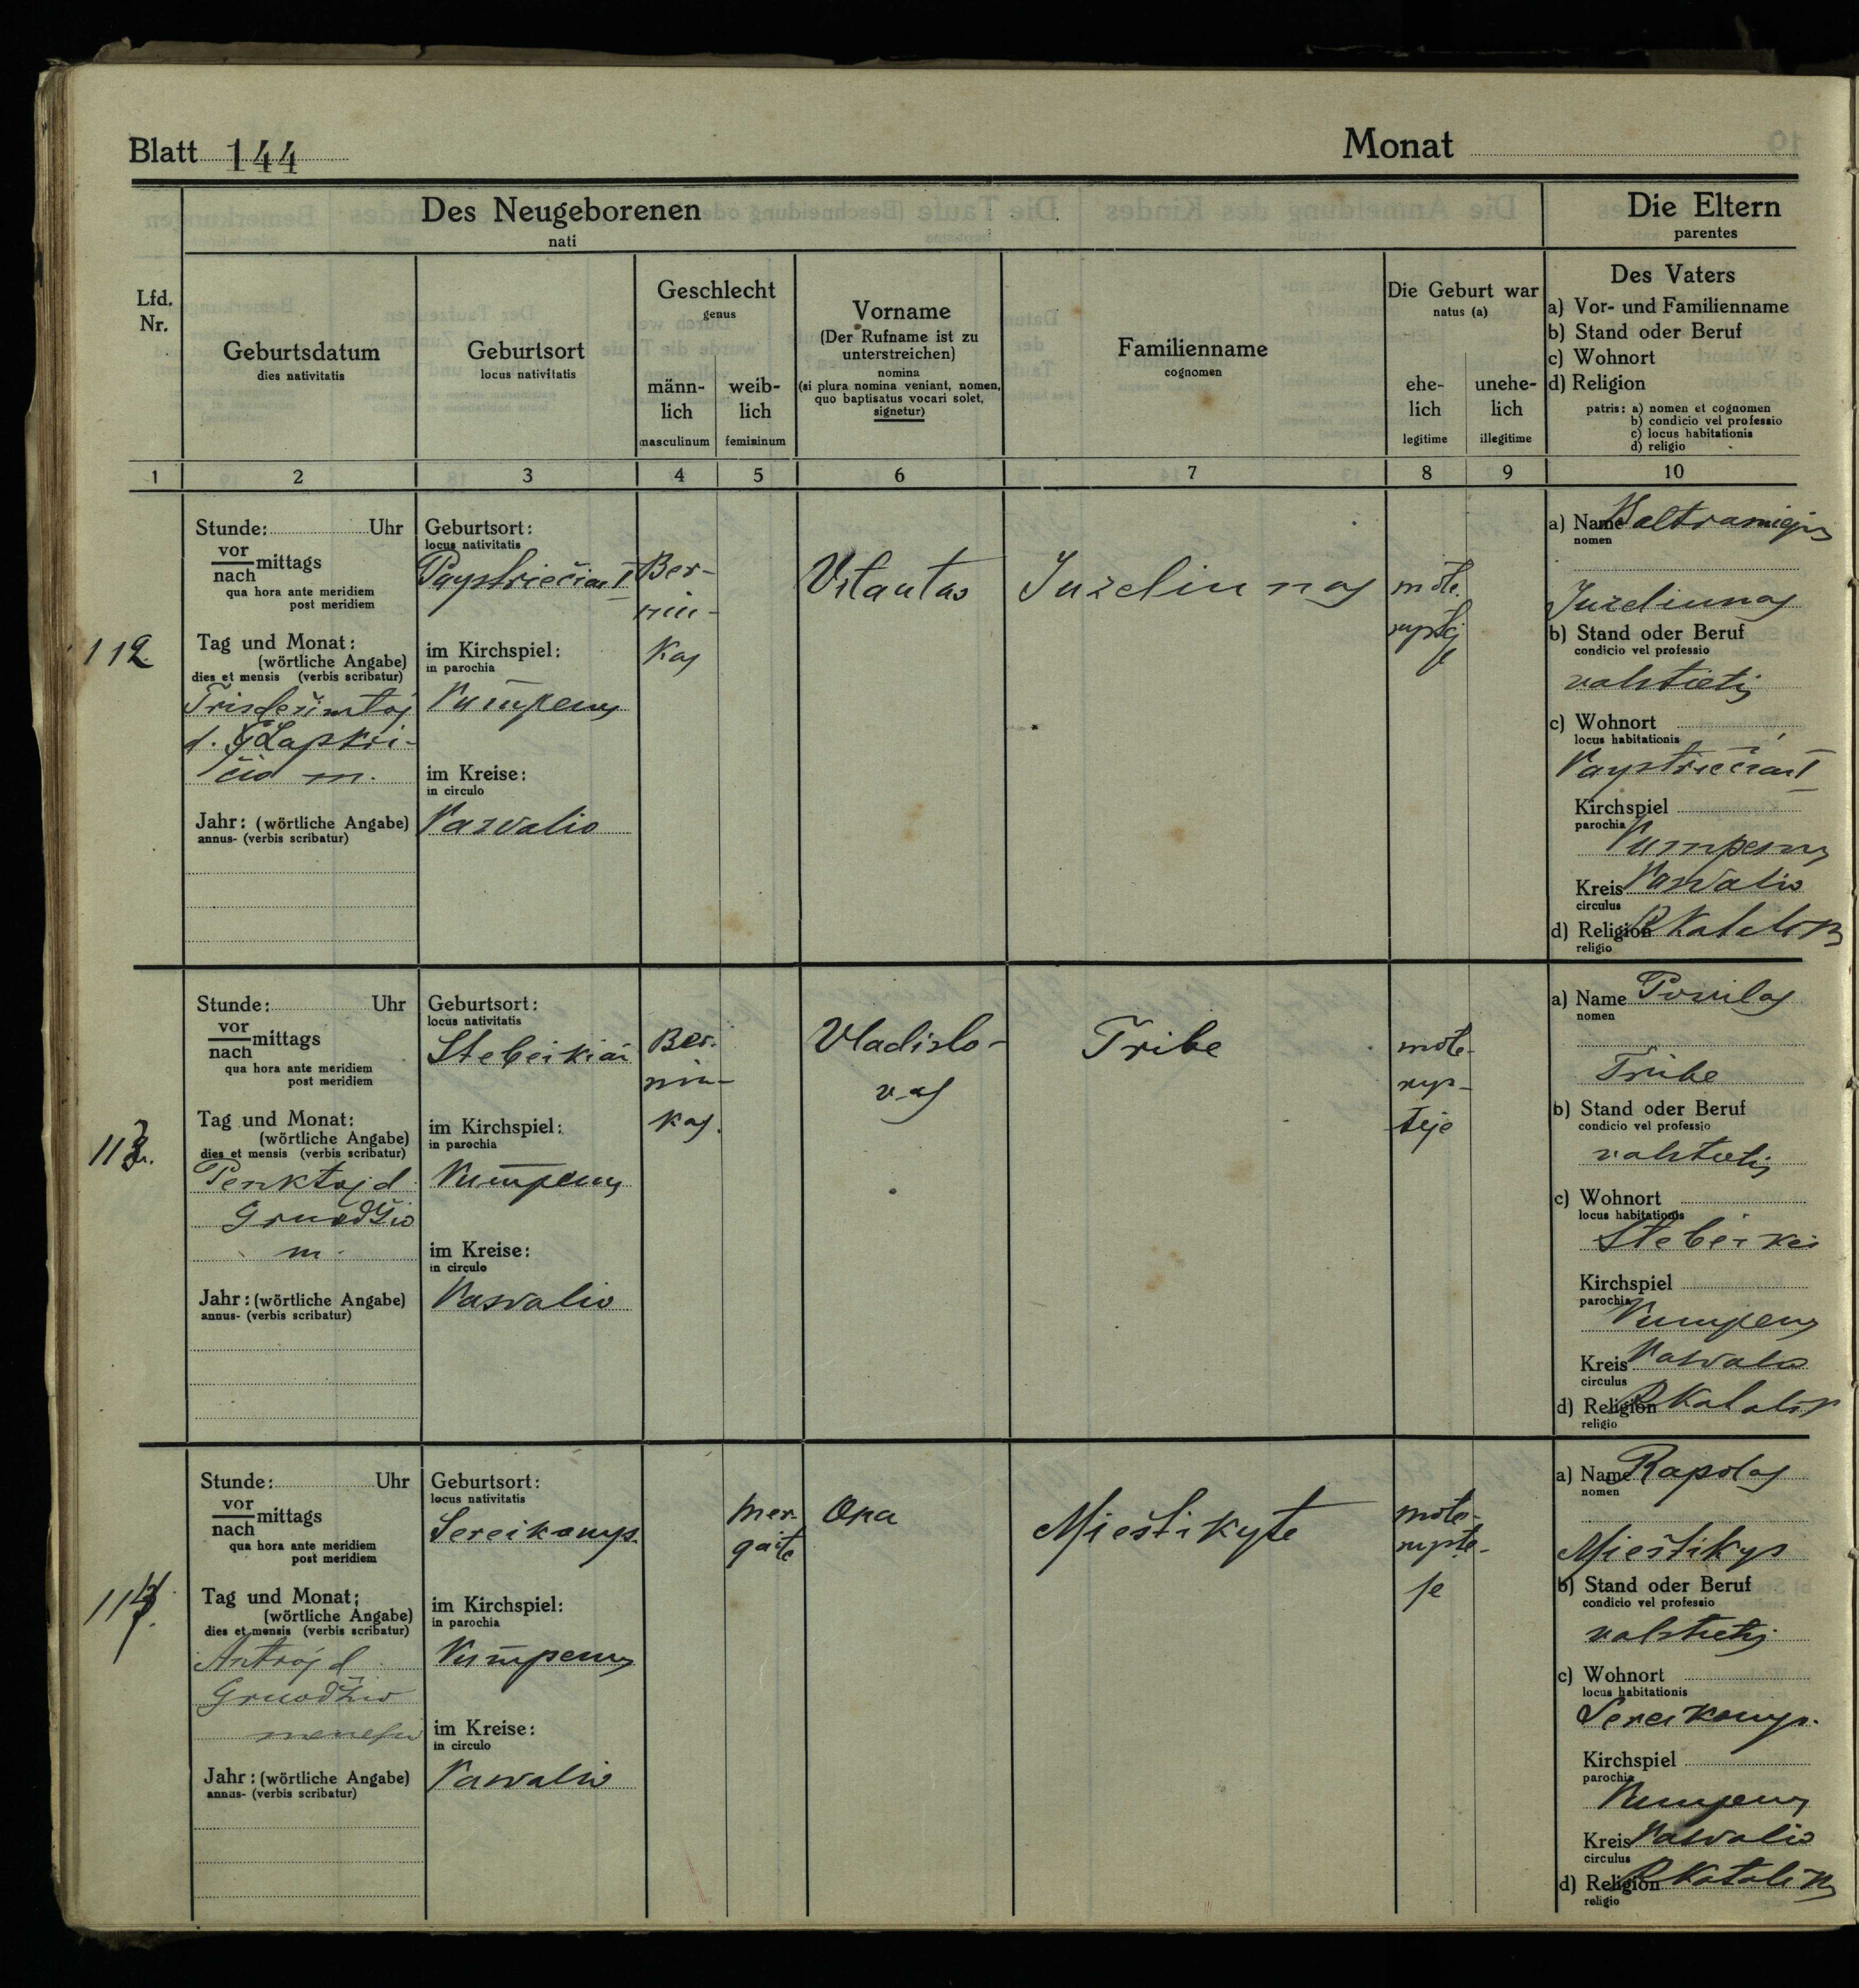 Blatt 144
Monat
Des Neugeborenen
nati
Die Eltern
parentes
Lfd.
Nr.
Geburtsdatum
dies nativitatis
Geburtsort
locus nativitatis
Geschlecht
genus
männ-
lich
masculinum
weib-
lich
femininum
Vorname
(Der Rufname ist zu
unterstreichen)
nomina
(si plura nomina veniant, nomen,
quo baptisatus vocari solet,
signetur)
Familienname
cognomen
Die Geburt war
natus (a)
ehe-
lich
legitime
unehe-
lich
illegitime
Des Vaters
a) Vor- und Familienname
b) Stand oder Beruf
c) Wohnort
d) Religion
patris: a) nomen et cognomen
b) condicio vel professio
c) locus habitationis
d) religio
1 2 3 4 5 6 7 8 9 10
112.
Stunde: Uhr
vor
nach mittags
qua hora ante meridiem
post meridiem
Tag und Monat:
(wörtliche Angabe)
dies et mensis (verbis scribatur)
Trisdešimtoj
d. Lapkri-
čio m.
Jahr: (wörtliche Angabe)
annus- (verbis scribatur)
Geburtsort:
locus nativitatis
Paystriečiai I
im Kirchspiel:
in parochia
Pumpenų
im Kreise:
in circulo
Pasvalio
Ber-
niu-
kas
Vitautas
Juzeliunas
mote
rystėj
e
a) Name Baltramiejus
nomen
Juzeliunas
b) Stand oder Beruf
condicio vel professio
valstietis
c) Wohnort
locus habitationis
Paystriečiai I
Kirchspiel
parochia
Pumpenų
Kreis Pasvalio
circulus
d) Religion R Katalikų
religio
113.
Stunde: Uhr
vor
nach mittags
qua hora ante meridiem
post meridiem
Tag und Monat:
(wörtliche Angabe)
dies et mensis (verbis scribatur)
Penktoj d.
Gruodžio
m.
Jahr: (wörtliche Angabe)
annus- (verbis scribatur)
Geburtsort:
locus nativitatis
Stebeikiai
im Kirchspiel:
in parochia
Pumpenų
im Kreise:
in circulo
Pasvalio
Ber-
niu-
kas.
Vladislo-
vas
Tribe
mote-
rys-
teje
a) Name Povilas
nomen
Tribe
b) Stand oder Beruf
condicio vel professio
valstietis
c) Wohnort
locus habitationis
Stebeikiai
Kirchspiel
parochia
Pumpenų
Kreis Pasvalio
circulus
d) Religion R Katalikų
religio
114.
Stunde: Uhr
vor
nach mittags
qua hora ante meridiem
post meridiem
Tag und Monat:
(wörtliche Angabe)
dies et mensis (verbis scribatur)
Antroj d.
Gruodžio
menesio
Jahr: (wörtliche Angabe)
annus- (verbis scribatur)
Geburtsort:
locus nativitatis
Sereikonys
im Kirchspiel:
in parochia
Pumpenų
im Kreise:
in circulo
Pasvalio
mer-
gaite
Ona
Mieštikyte
mote-
ryste-
je
a) Name Rapolas
nomen
Mieštikys
b) Stand oder Beruf
condicio vel professio
valstietis
c) Wohnort
locus habitationis
Sereikonys
Kirchspiel
parochia
Pumpenų
Kreis Pasvalio
circulus
d) Religion R Katalikų
religio